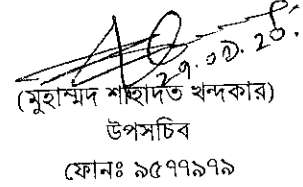 ২৭.০১.২৫.
(মুহাম্মদ শাহাদত খন্দকার)
উপসচিব
ফোনঃ ৯৫৭৭৯৭৯